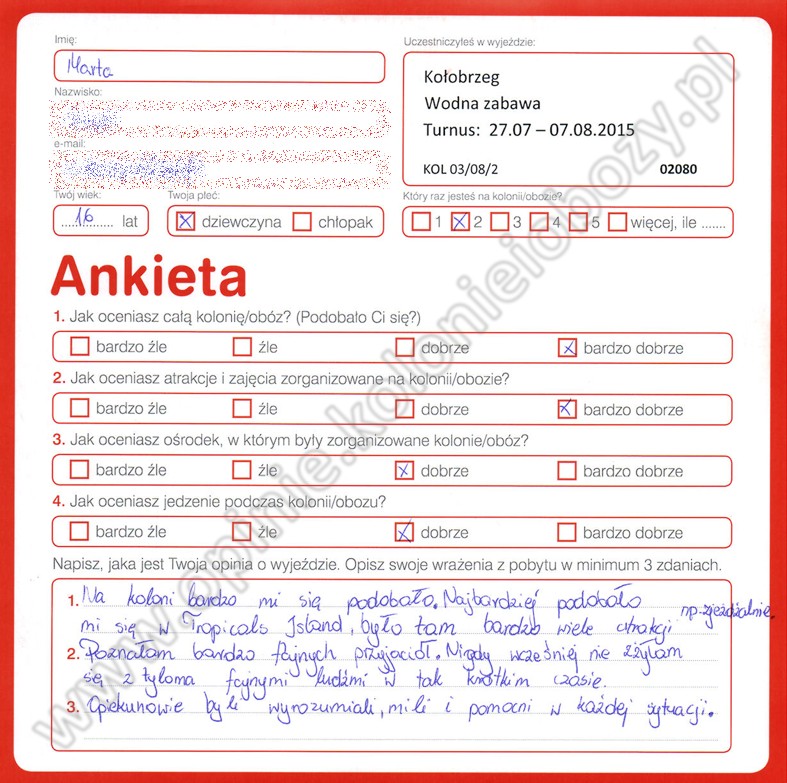 Imię:
Marta
Uczestniczyłeś w wyjeździe:
Kołobrzeg
Wodna zabawa
Turnus: 27.07 – 07.08.2015
KOL 03/08/2 02080
Nazwisko:
e-mail:
Twój wiek:
16 lat
Twoja płeć:
dziewczyna chłopak
Który raz jesteś na kolonii/obozie?
1 2 3 4 5 więcej, ile .......
Ankieta
1. Jak oceniasz całą kolonię/obóz? (Podobało Ci się?)
bardzo źle źle dobrze bardzo dobrze
2. Jak oceniasz atrakcje i zajęcia zorganizowane na kolonii/obozie?
bardzo źle źle dobrze bardzo dobrze
3. Jak oceniasz ośrodek, w którym były zorganizowane kolonie/obóz?
bardzo źle źle dobrze bardzo dobrze
4. Jak oceniasz jedzenie podczas kolonii/obozu?
bardzo źle źle dobrze bardzo dobrze
Napisz, jaka jest Twoja opinia o wyjeździe. Opisz swoje wrażenia z pobytu w minimum 3 zdaniach.
1. Na koloni bardzo mi się podobało. Najbardziej podobało
mi się w Tropicals Island, było tam bardzo wiele atrakcji np. zjeżdżalnie.
2. Poznałam bardzo fajnych przyjaciół. Nigdy wcześniej nie zżyłam
się z tyloma fajnymi ludźmi w tak krótkim czasie.
3. Opiekunowie byli wyrozumiali, mili i pomocni w każdej sytuacji.
www.opinie.kolonieiobozy.pl